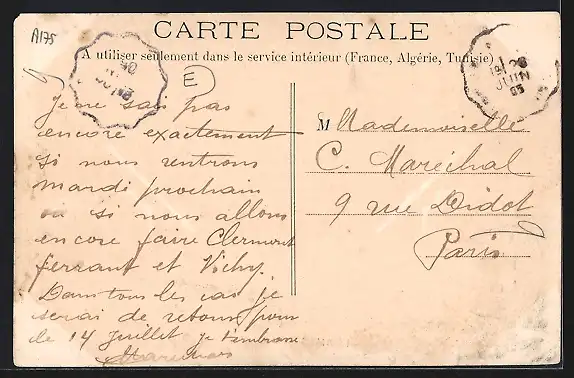 A175
CARTE POSTALE
A utiliser seulement dans le service intérieur (France, Algérie, Tunisie)
E
26
JUIN
05
Je ne sais pas
encore exactement
si nous rentrons
mardi prochain
ou si nous allons
encore faire Clermont
ferrant et Vichy.
Dans tous les cas je
serai de retour pour
le 14 Juillet je t'embrasse
M Mademoiselle
C. Maréchal
9 rue Didot
Paris